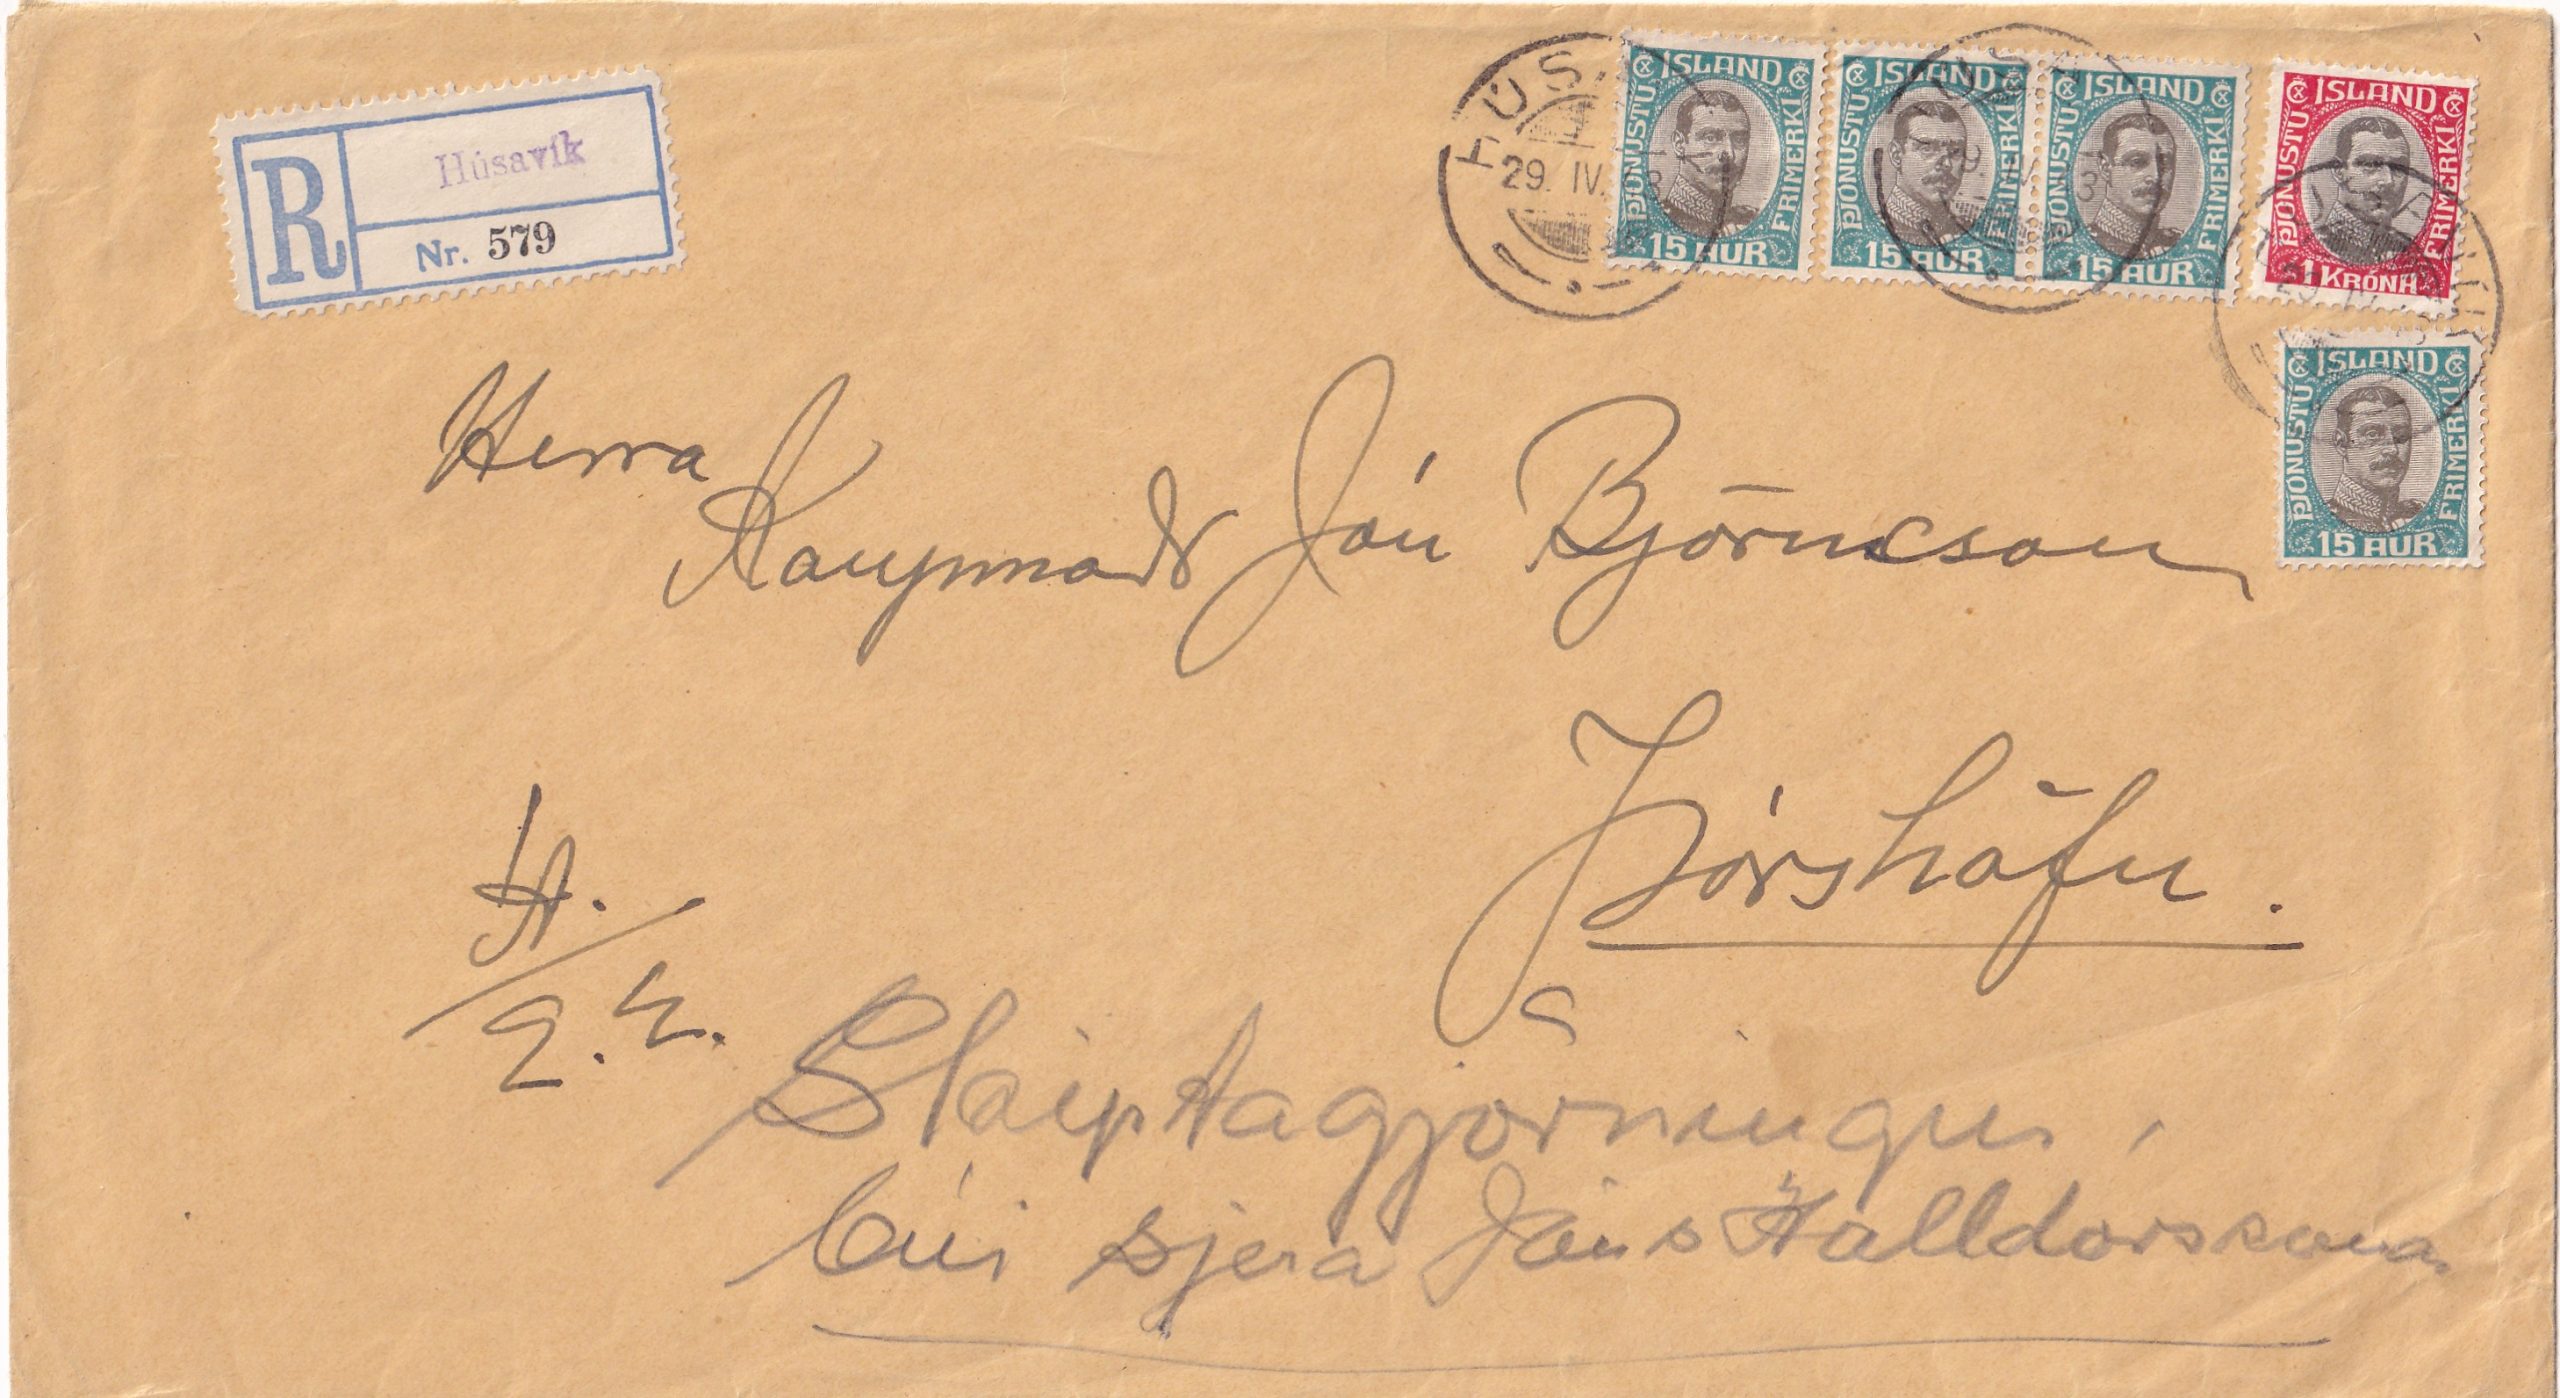 R
Húsavík
Nr. 579
HÚS
29. IV.
ÍSLAND
ÞJÓNUSTU
FRIMERKI
15 AUR
ÍSLAND
ÞJÓNUSTU
FRIMERKI
15 AUR
ÍSLAND
ÞJÓNUSTU
FRIMERKI
15 AUR
ÍSLAND
ÞJÓNUSTU
FRIMERKI
1 KRÓNA
ÍSLAND
ÞJÓNUSTU
FRIMERKI
15 AUR
Herra
Kaupmaðr Jón Björnsson
Þórshöfn.
Skiptagjörningur
búi sjera Jóns Halldórssonar